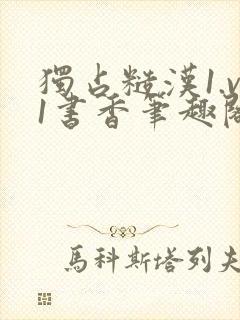 獨占糙漢1.v
1書香筆趣閣
馬科斯塔列夫